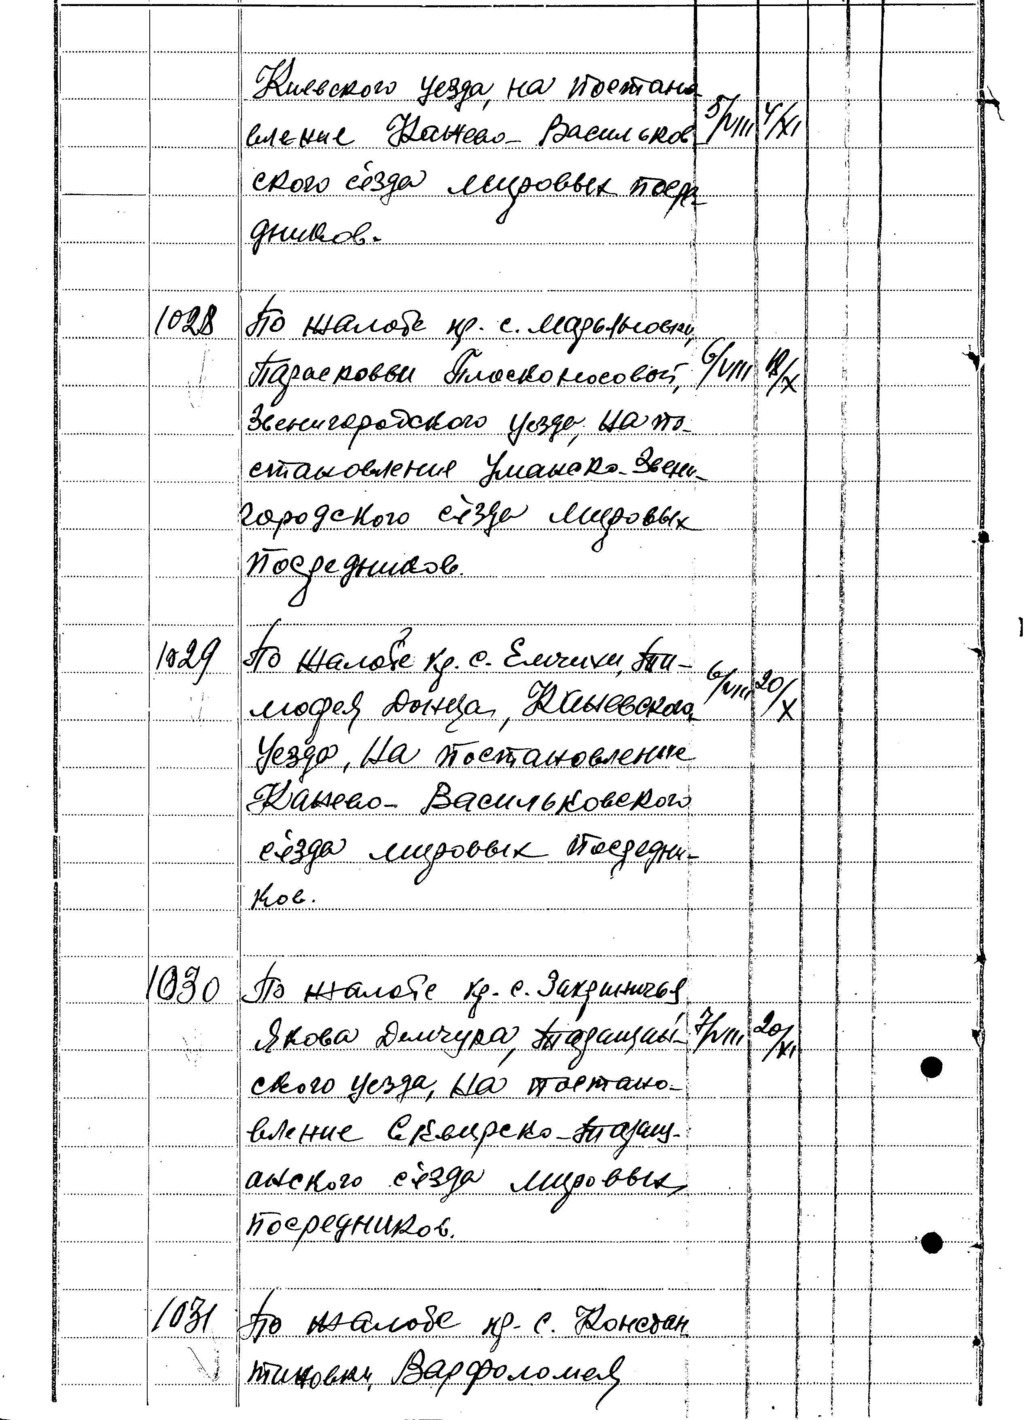 Киевского уезда, на постано-
вление Канево-Васильков 5/VIII 4/XI
ского сьезда мировых посре-
дников.
1028 По жалобе кр. с. Марьяновки,
Парасковьи Плосконосовой, 6/VIII 12/X
Звенигородского уезда, на по-
становление Уманско-Звени-
городского сьезда мировых
посредников.
1029 По жалобе кр. с. Емчихи, Ти-
мофея Донца, Каневского 6/VIII 20/X
уезда, на постановление
Канево-Васильковского
сьезда мировых посредни-
ков.
1030 По жалобе кр. с. Закриничья
Якова Демчура, Таращан- 7/VIII 20/XI
ского уезда, на постано-
вление Сквирско-Таращ-
анского сьезда мировых
посредников.
1031 По жалобе кр. с. Констан
тиновки, Варфоломея